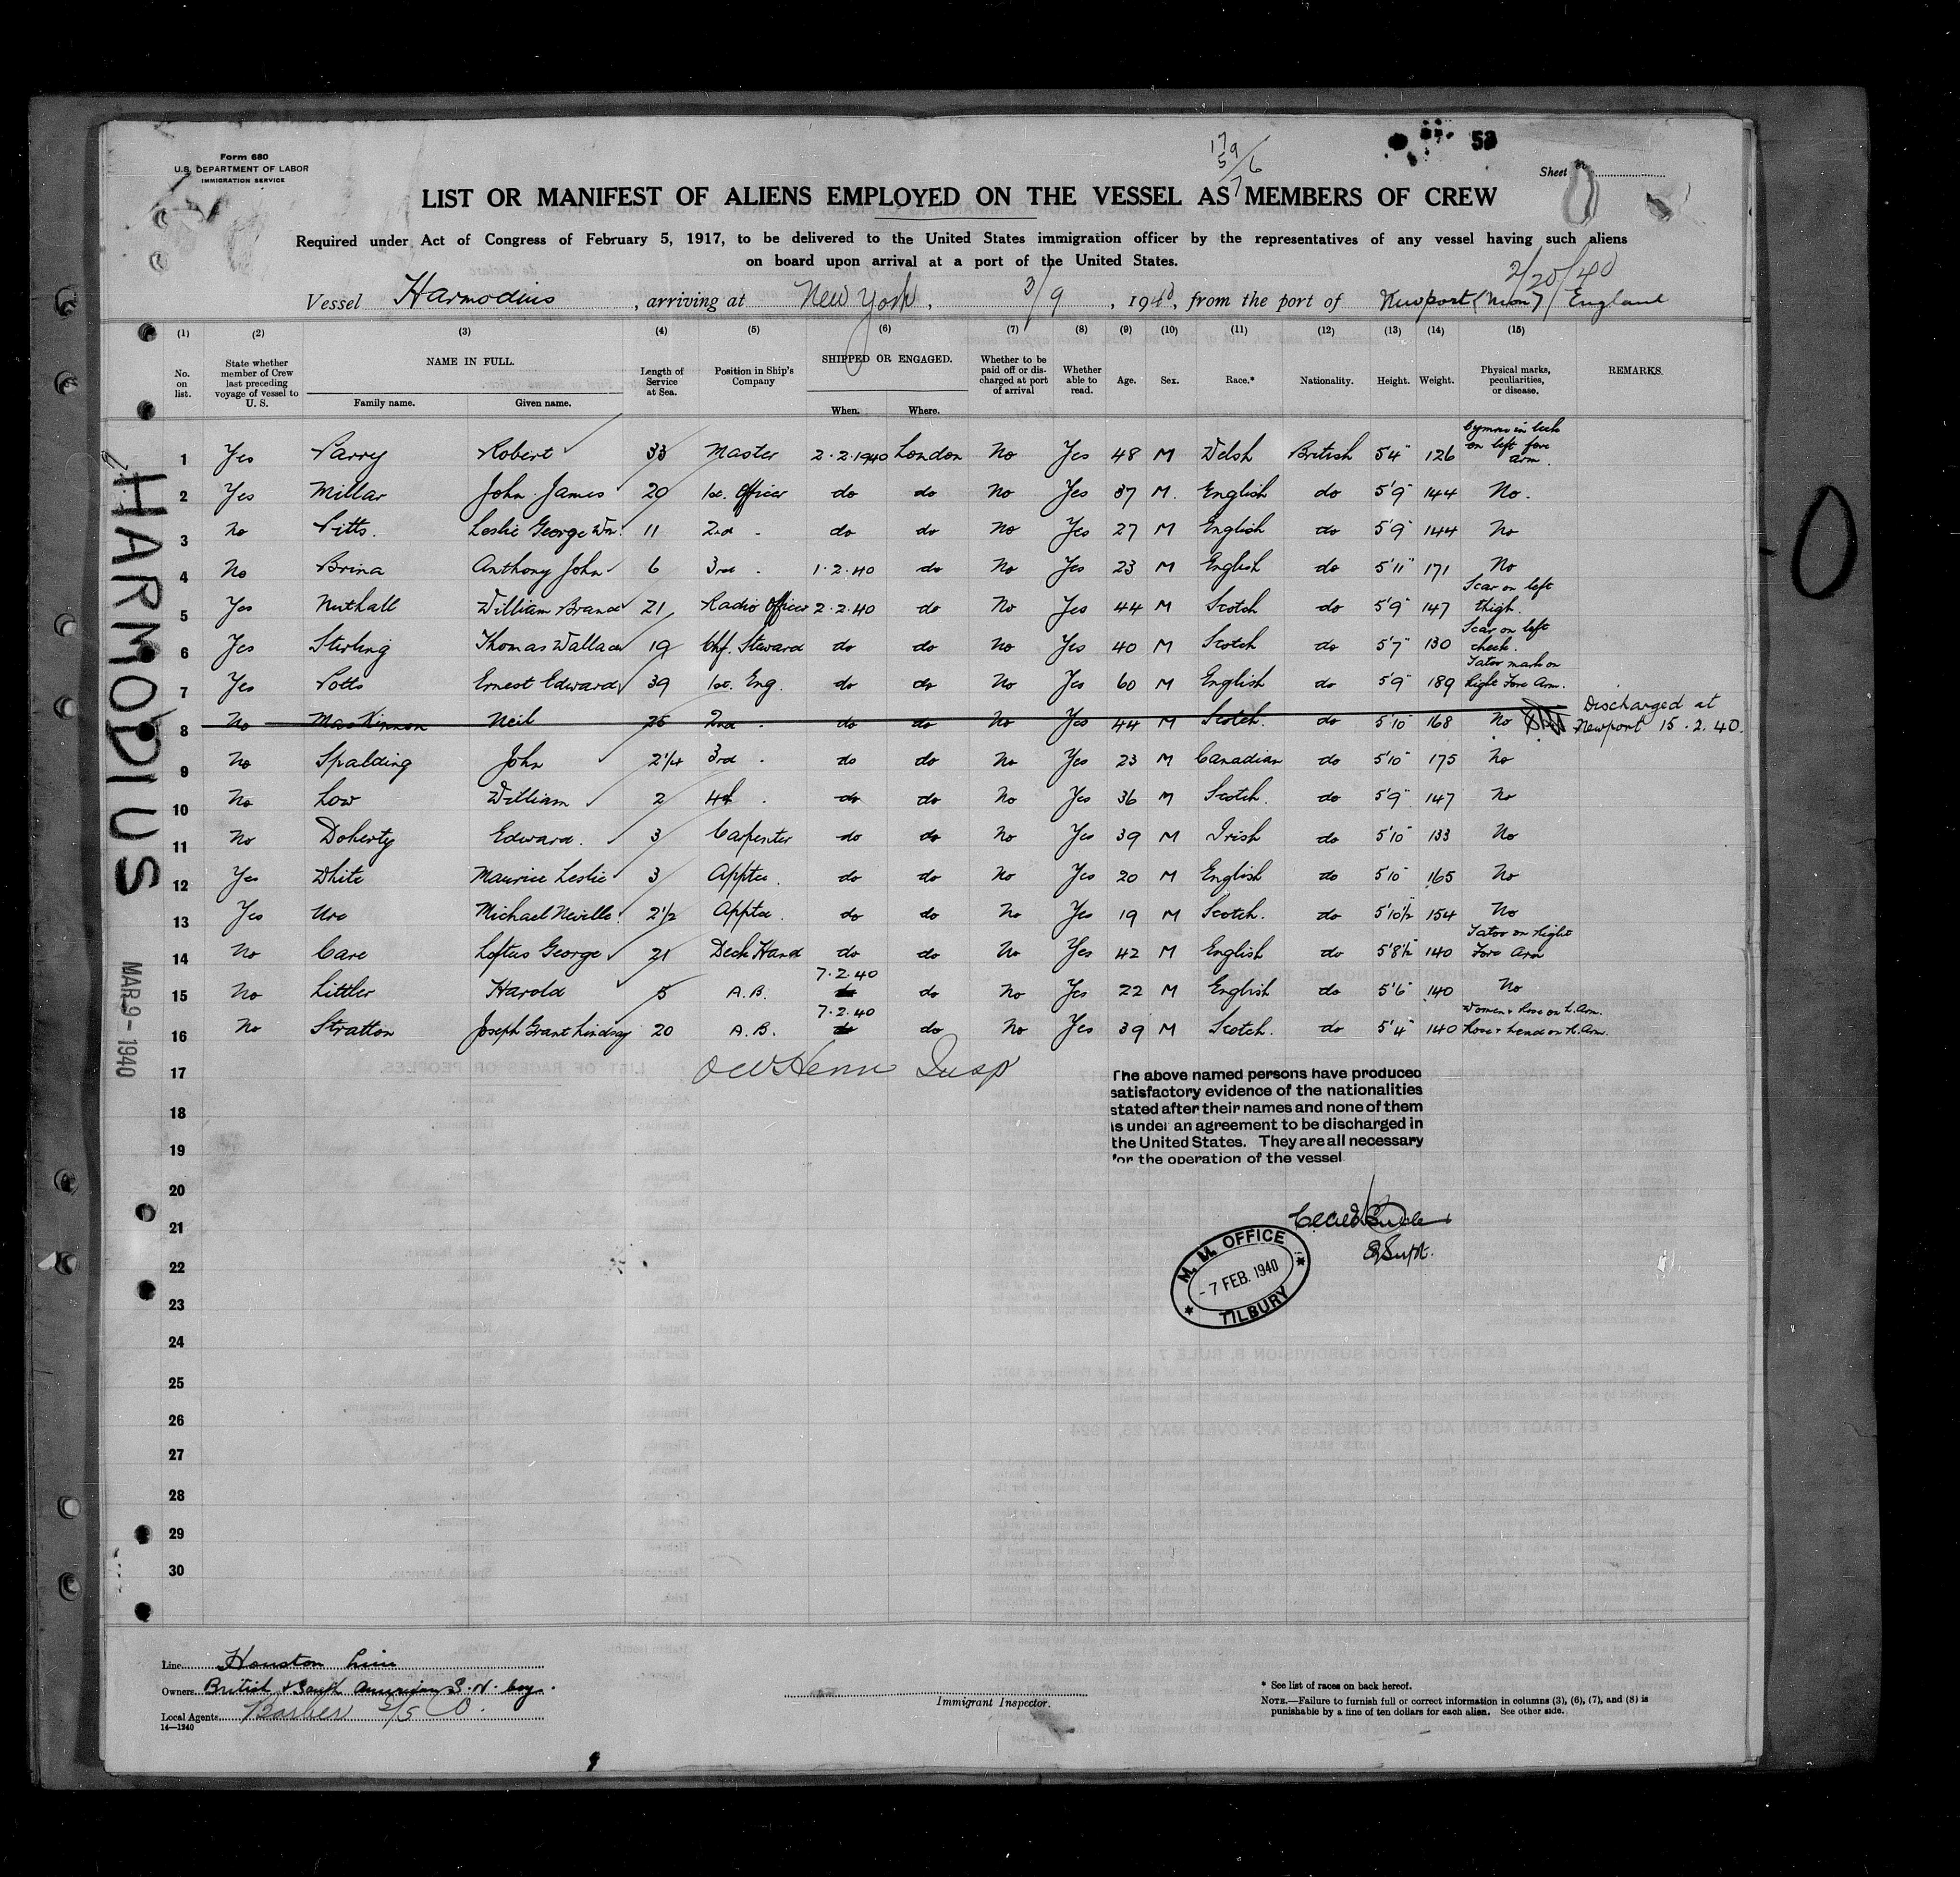 53
17
59/6
7
Form 680
U.S. DEPARTMENT OF LABOR
IMMIGRATION SERVICE
Sheet
LIST OR MANIFEST OF ALIENS EMPLOYED ON THE VESSEL AS MEMBERS OF CREW
Required under Act of Congress of February 5, 1917, to be delivered to the United States immigration officer by the representatives of any vessel having such aliens
on board upon arrival at a port of the United States.
2/20/40
Vessel Harmodius, arriving at New York, 3/9, 1940, from the port of Newport (Mon) England
(1) (2) (3) (4) (5) (6) (7) (8) (9) (10) (11) (12) (13) (14) (15)
No. on list. State whether member of Crew last preceding voyage of vessel to U. S. NAME IN FULL. Family name. Given name. Length of Service at Sea. Position in Ship's Company SHIPPED OR ENGAGED. When. Where. Whether to be paid off or discharged at port of arrival Whether able to read. Age. Sex. Race.* Nationality. Height. Weight. Physical marks, peculiarities, or disease. REMARKS.
1 Yes Parry Robert 33 Master 2.2.1940 London No Yes 48 M Welsh British 5'4" 126 on left fore arm.
2 Yes Millar John James 20 1st. Officer do do No Yes 37 M. English do 5'9" 144 No.
3 No Pitts. Leslie George Wm. 11 2nd " do do No Yes 27 M English do 5'9" 144 No
4 No Brina Anthony John 6 3rd " 1.2.40 do No Yes 23 M English do 5'11" 171 No
5 Yes Nuthall William Brand 21 Radio Officer 2.2.40 do No Yes 44 M Scotch do 5'9" 147 Scar on left thigh.
6 Yes Stirling Thomas Wallace 19 Chf. Steward do do No Yes 40 M Scotch do 5'7" 130 Scar on left cheek.
7 Yes Potts Ernest Edward 39 1st. Eng. do do No Yes 60 M English do 5'9" 189 Tatoo mark on Right Fore Arm.
8 No MacKinnon Neil 25 2nd " do do No Yes 44 M Scotch. do 5'10" 168 No Discharged at Newport 15.2.40.
9 No Spalding John 2 1/4 3rd " do do No Yes 23 M Canadian do 5'10" 175 No
10 No Low William 2 4th " do do No Yes 36 M Scotch. do 5'9" 147 No
11 No Doherty Edward. 3 Carpenter do do No Yes 39 M Irish do 5'10" 133 No
12 Yes White Maurice Leslie 3 Apptce. do do No Yes 20 M English do 5'10 165 No
13 Yes Ure Michael Neville 2 1/2 Apptce. do do No Yes 19 M Scotch. do 5'10 1/2 154 No
14 No Care Loftus George 21 Deck Hand do do No Yes 42 M English do 5'8 1/2" 140 Tatoo on Right Fore Arm
15 No Littler Harold 5 A.B. 7.2.40 do do No Yes 22 M English do 5'6" 140 No
16 No Stratton Joseph Grant Lindsay 20 A.B. 7.2.40 do do No Yes 39 M Scotch. do 5'4" 140 Women & Rose on L. Arm. Rose & Head on R. Arm.
17 Insp
The above named persons have produced
satisfactory evidence of the nationalities
stated after their names and none of them
is under an agreement to be discharged in
the United States. They are all necessary
for the operation of the vessel
18
19
20
21
22
23
24
25
26
27
28
29
30
Supt.
M. M. OFFICE
- 7 FEB. 1940
TILBURY
HARMODIUS
MAR 9 - 1940
Line Houston Line
Owners British & South American S. N. Coy.
Local Agents Barber S/S Co.
14—1240
Immigrant Inspector.
* See list of races on back hereof.
NOTE.—Failure to furnish full or correct information in columns (3), (6), (7), and (8) is
punishable by a fine of ten dollars for each alien. See other side.